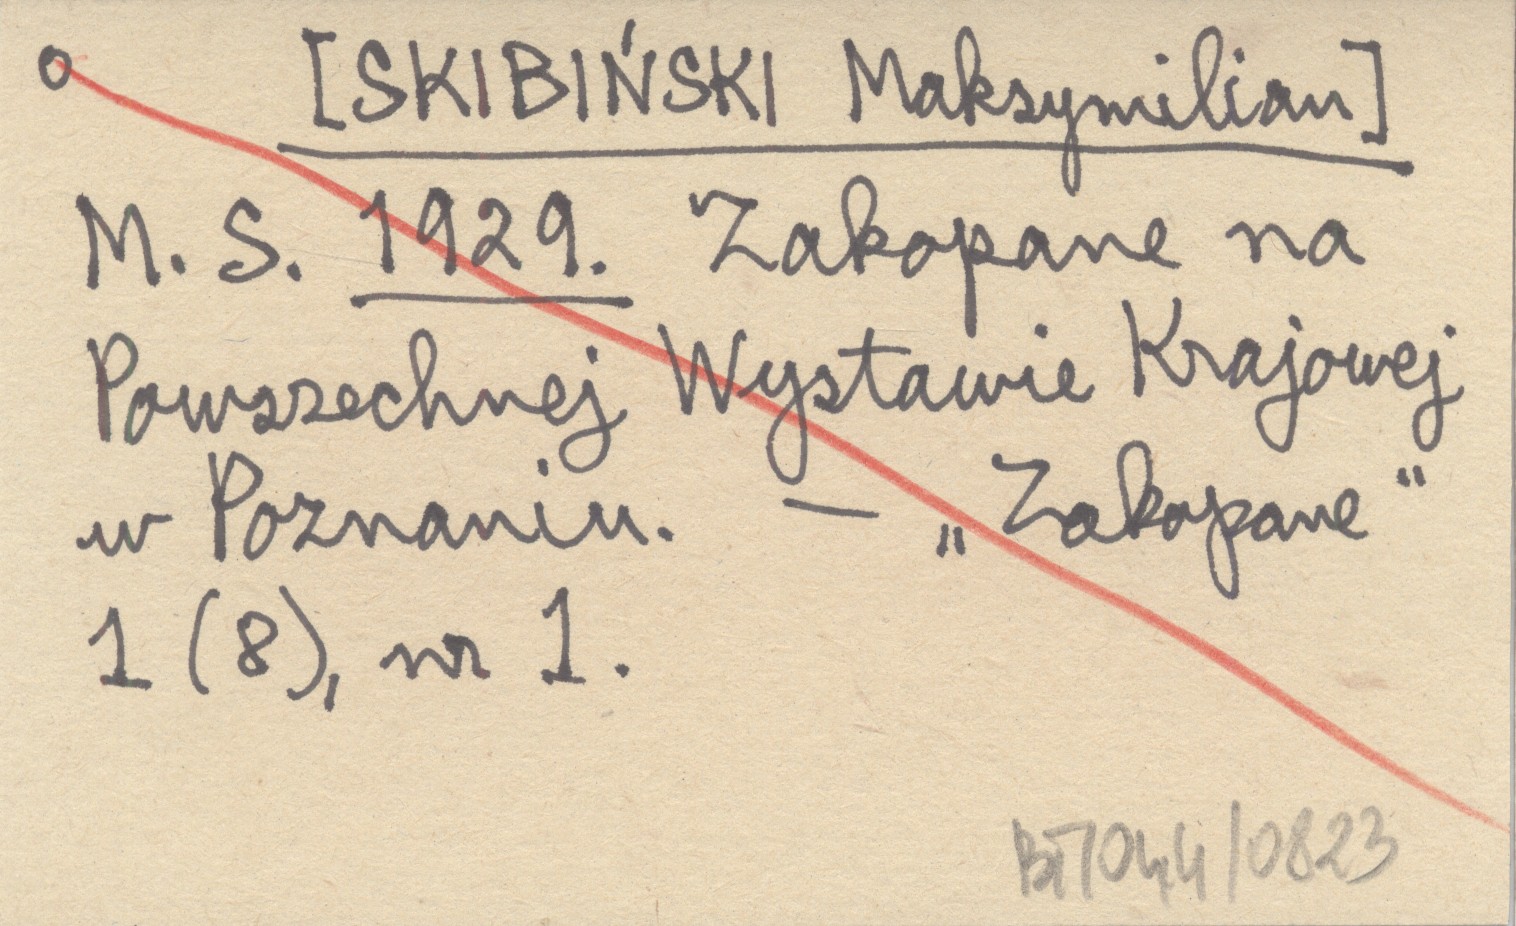 [SKIBIŃSKI Maksymilian]
M. S. 1929. Zakopane na
Powszechnej Wystawie Krajowej
w Poznaniu. — „Zakopane"
1 (8), nr 1.
/0823